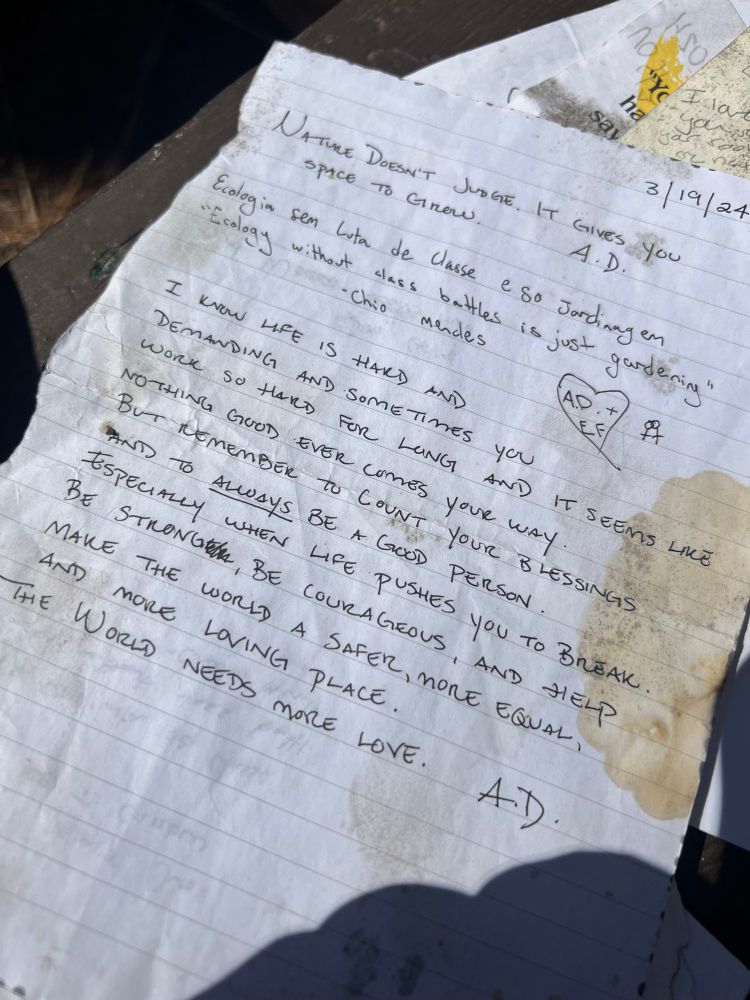 3/19/24
NATURE DOESN'T JUDGE. IT GIVES YOU
SPACE TO GROW.
A.D.
Ecologia sem luta de classe e so Jardinagem
"Ecology without class battles is just gardening"
-Chio Mendes
A.D. +
E.F
I KNOW LIFE IS HARD AND
DEMANDING AND SOMETIMES YOU
WORK SO HARD FOR LONG AND IT SEEMS LIKE
NOTHING GOOD EVER COMES YOUR WAY.
BUT REMEMBER TO COUNT YOUR BLESSINGS
AND TO ALWAYS BE A GOOD PERSON.
ESPECIALLY WHEN LIFE PUSHES YOU TO BREAK.
BE STRONG, BE COURAGEOUS, AND HELP
MAKE THE WORLD A SAFER, MORE EQUAL,
AND MORE LOVING PLACE.
THE WORLD NEEDS MORE LOVE.
A.D.
"Yo
ha
say
I love
you